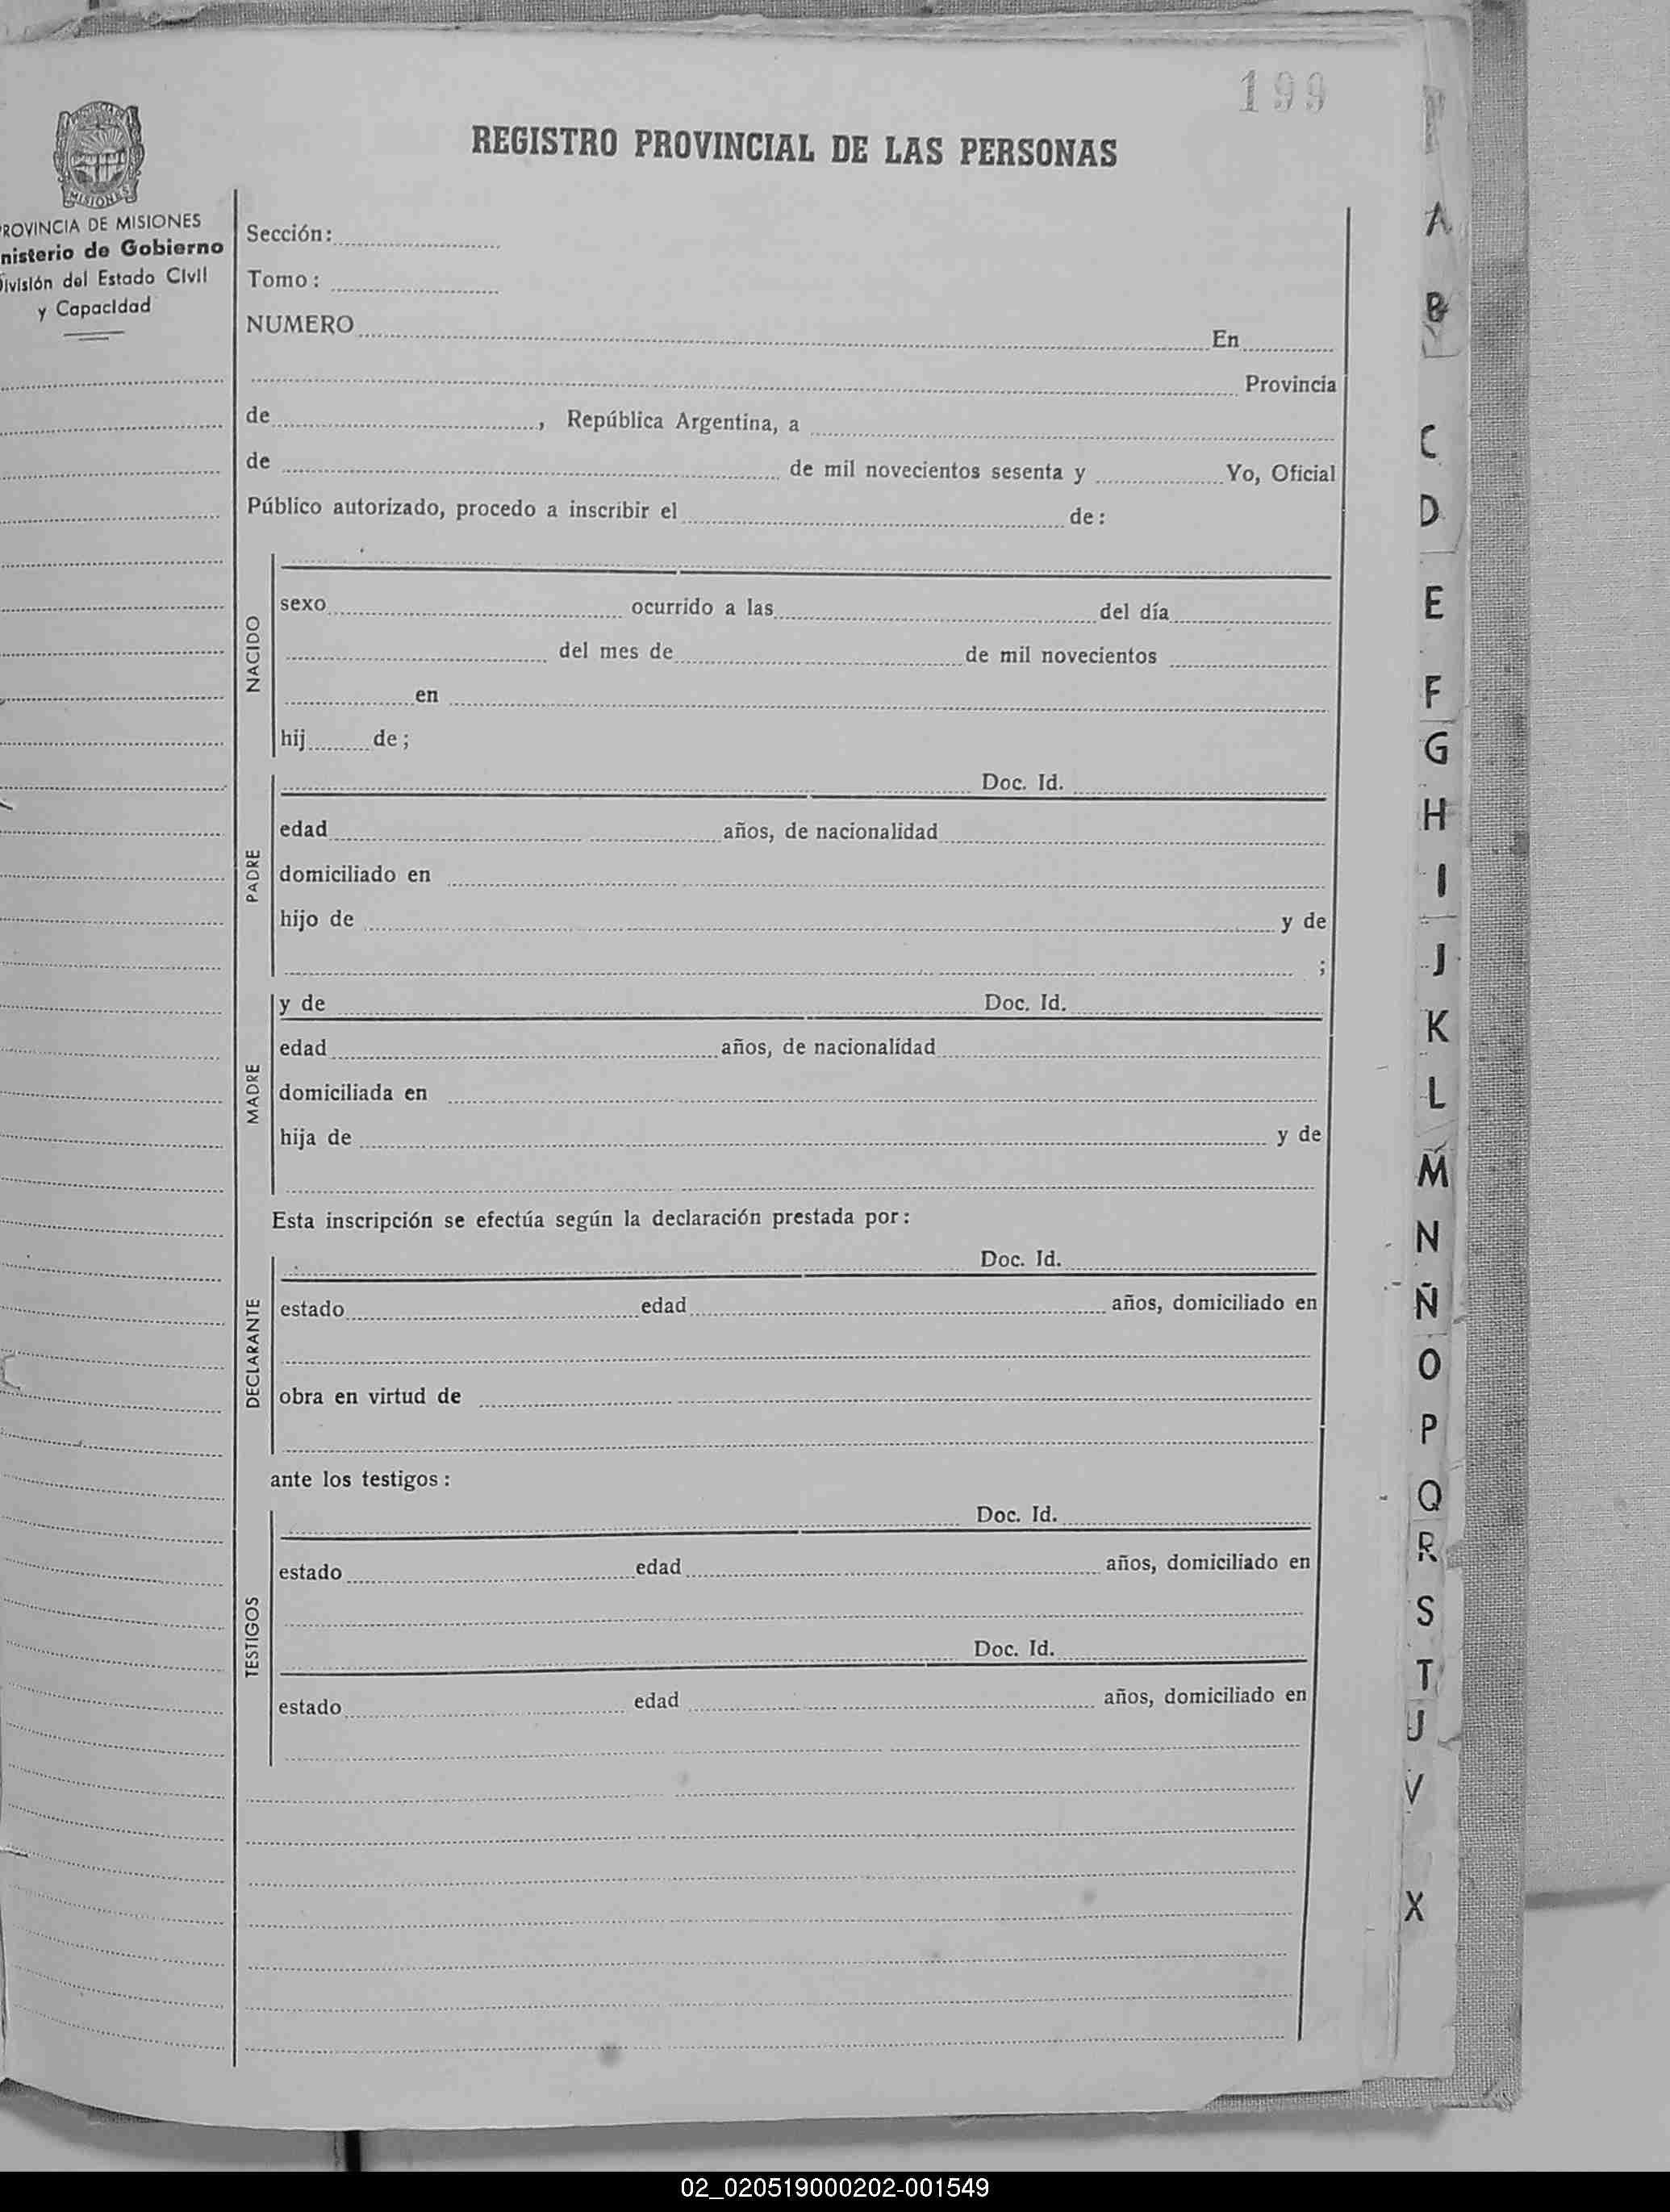 199
REGISTRO PROVINCIAL DE LAS PERSONAS
PROVINCIA DE
MISIONES
ROVINCIA DE MISIONES
nisterio de Gobierno
ivisión del Estado Civil
y Capacidad
Sección:
Tomo:
NUMERO En
Provincia
de , República Argentina, a
de de mil novecientos sesenta y Yo, Oficial
Público autorizado, procedo a inscribir el de:
NACIDO
sexo ocurrido a las del día
del mes de de mil novecientos
en
hij de;
PADRE
Doc. Id.
edad años, de nacionalidad
domiciliado en
hijo de y de
;
MADRE
y de Doc. Id.
edad años, de nacionalidad
domiciliada en
hija de y de
Esta inscripción se efectúa según la declaración prestada por:
DECLARANTE
Doc. Id.
estado edad años, domiciliado en
obra en virtud de
ante los testigos:
TESTIGOS
Doc. Id.
estado edad años, domiciliado en
Doc. Id.
estado edad años, domiciliado en
A
B
C
D
E
F
G
H
I
J
K
L
M
N
Ñ
O
P
Q
R
S
T
U
V
X
02_020519000202-001549